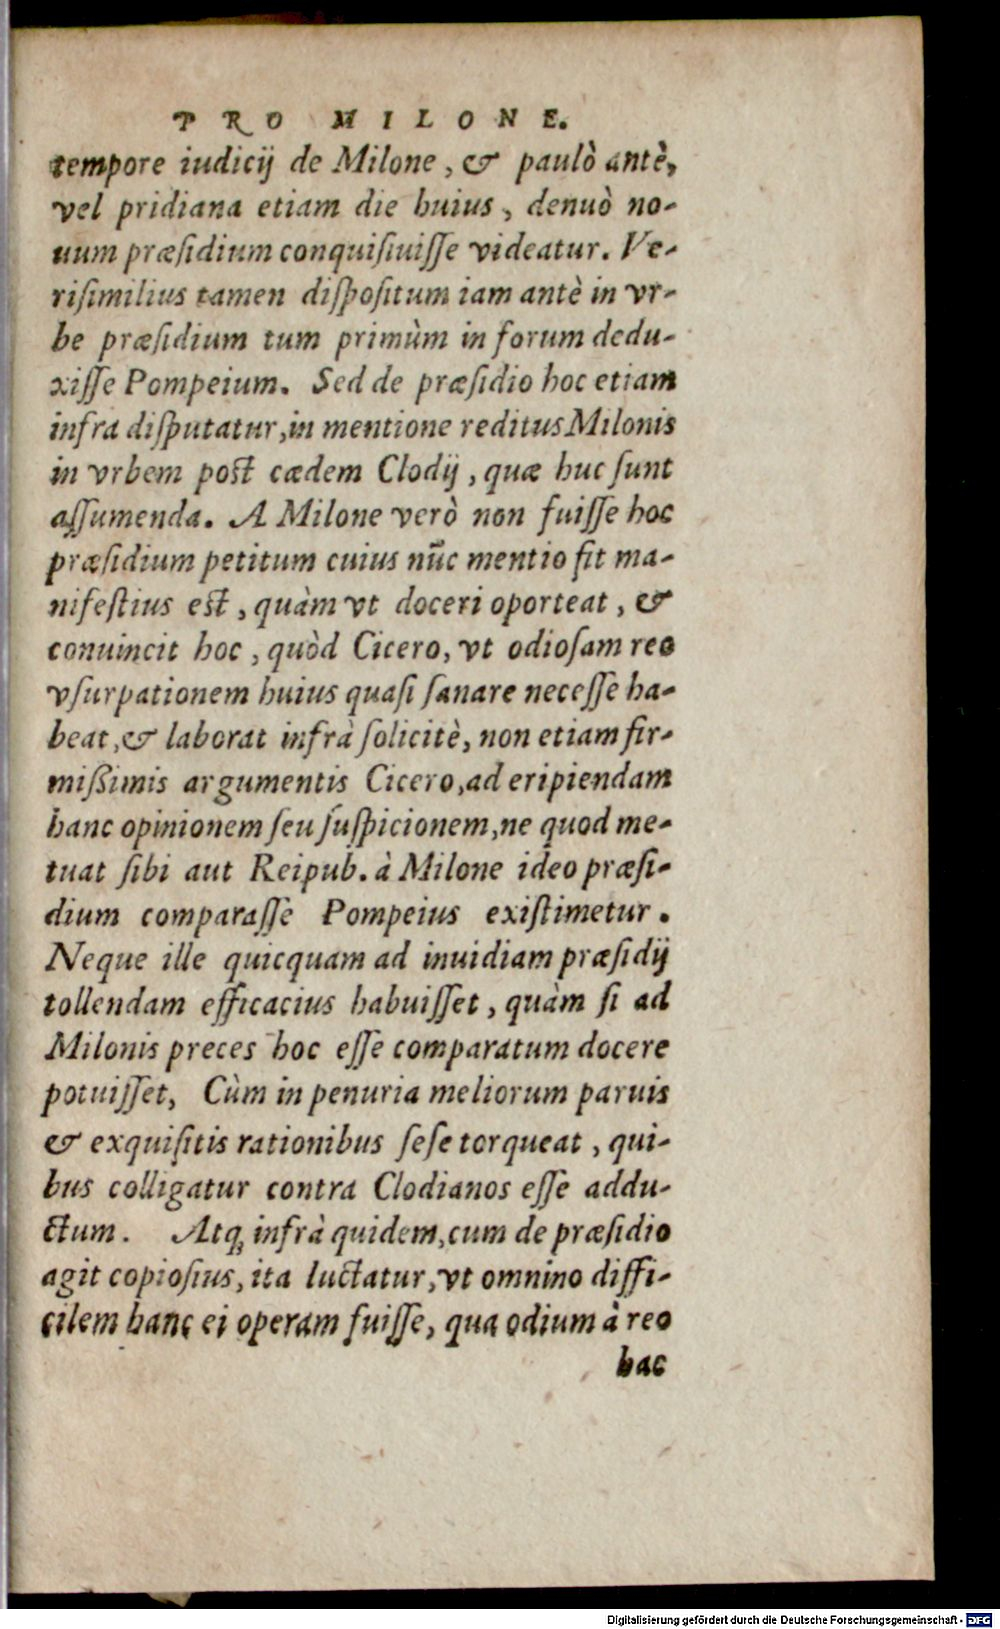 PRO MILONE.
tempore iudicij de Milone, & paulò antè,
vel pridiana etiam die huius, denuò no-
uum præsidium conquisiuisse videatur. Ve-
risimilius tamen dispositum iam antè in vr-
be præsidium tum primùm in forum dedu-
xisse Pompeium. Sed de præsidio hoc etiam
infra disputatur, in mentione reditus Milonis
in vrbem post cædem Clodij, quæ huc sunt
assumenda. A Milone verò non fuisse hoc
præsidium petitum cuius nūc mentio fit ma-
nifestius est, quàm vt doceri oporteat, &
conuincit hoc, quòd Cicero, vt odiosam reo
vsurpationem huius quasi sanare necesse ha-
beat, & laborat infrà solicitè, non etiam fir-
mißimis argumentis Cicero, ad eripiendam
hanc opinionem seu suspicionem, ne quod me-
tuat sibi aut Reipub. à Milone ideo præsi-
dium comparasse Pompeius existimetur.
Neque ille quicquam ad inuidiam præsidij
tollendam efficacius habuisset, quàm si ad
Milonis preces hoc esse comparatum docere
potuisset, Cùm in penuria meliorum paruis
& exquisitis rationibus sese torqueat, qui-
bus colligatur contra Clodianos esse addu-
ctum. Atq; infrà quidem, cum de præsidio
agit copiosius, ita luctatur, vt omnino diffi-
cilem hanc ei operam fuisse, qua odium à reo
hac
Digitalisierung gefördert durch die Deutsche Forschungsgemeinschaft - DFG